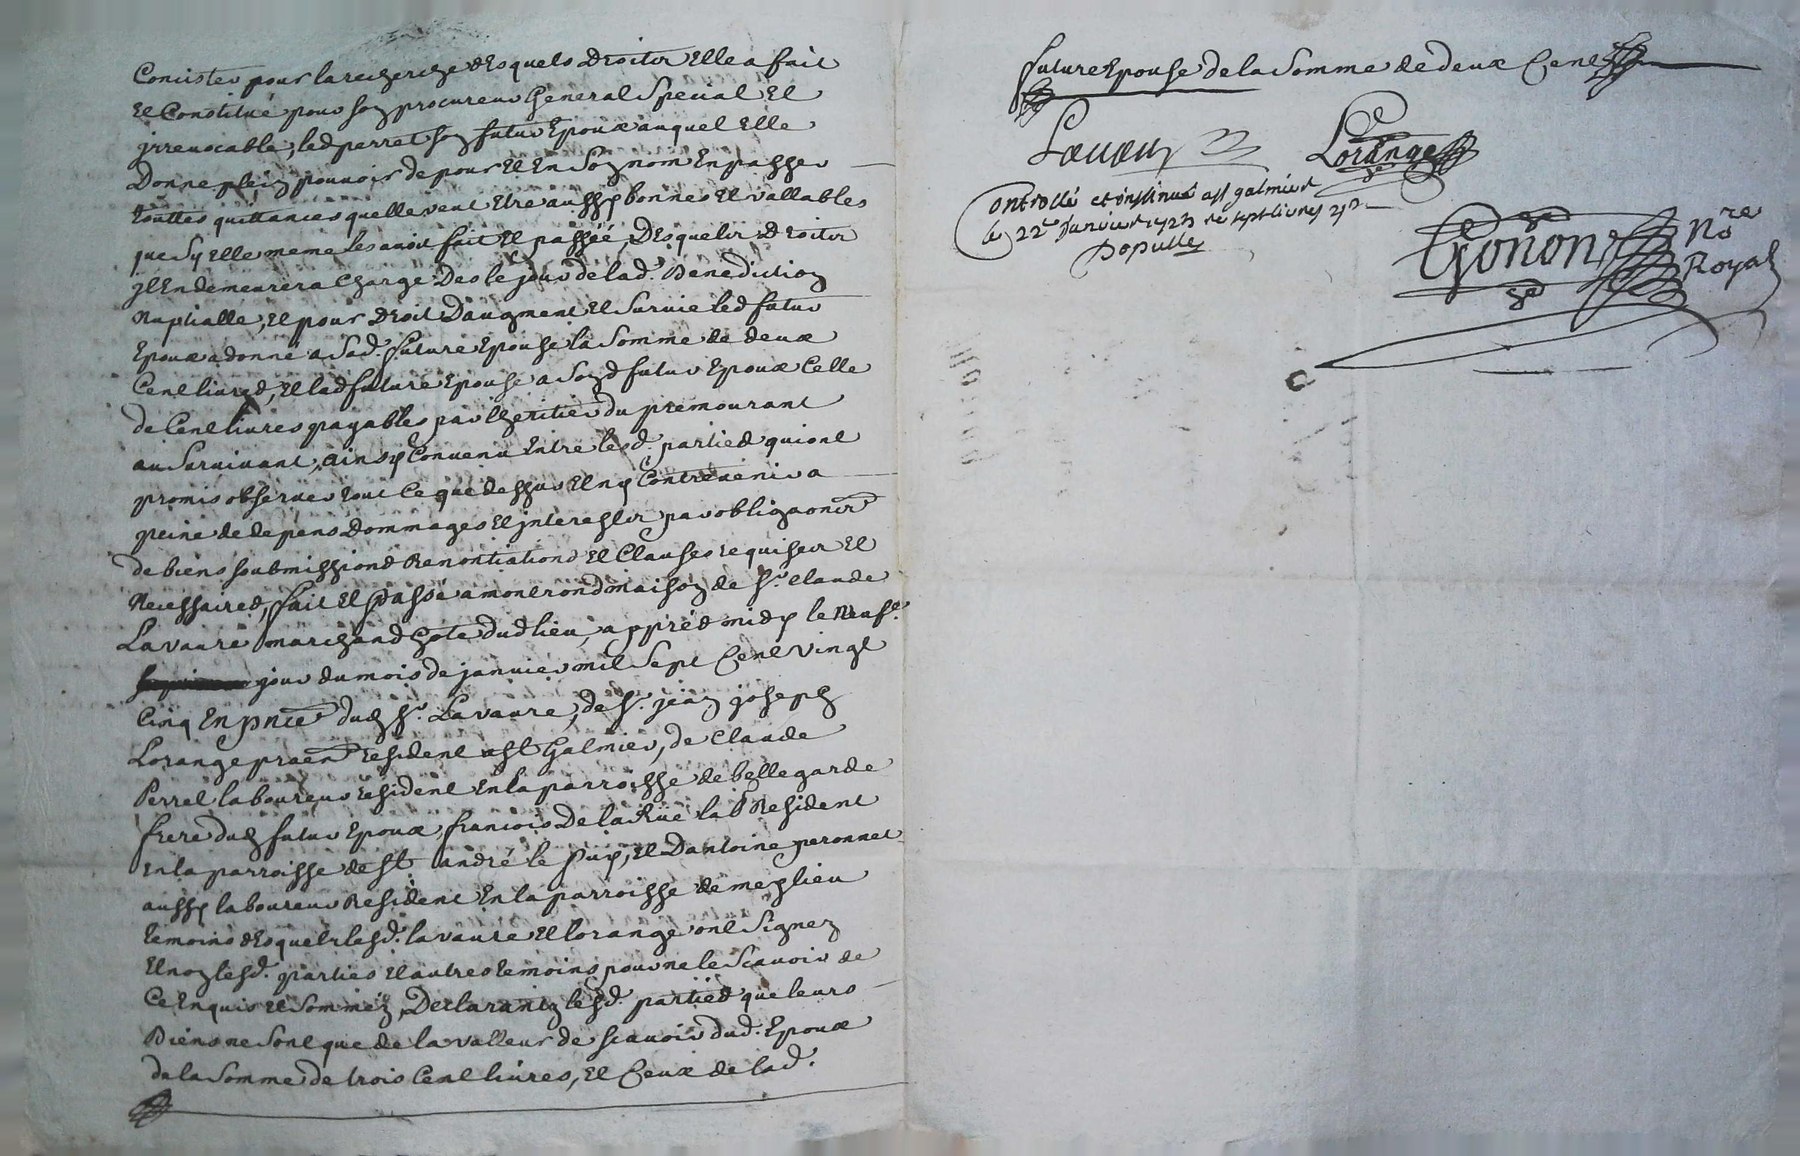 Concister pour la recherche desquels droitz Elle a fait
Et Constitué pour son procureur General Special Et
jrreuocable, led perret son futur Epoux auquel Elle
Donne plein pouuoir de pour Et En Son nom En passer
touttes quittances quelle veut Etre aussy bonnes Et vallables
que Sy Elle meme les auoit fait Et passéé, Desquelz droitz
jl En demeurera Charge Des le jour de lad. Benediction
Nuptialle, Et pour Droit Daugment Et Suruie led futur
Epoux a donné a Sad. future Epouse la Somme de deux
Cent liures, Et lad future Epouse a Sond futur Epoux Celle
de Cent liures payables par lheritier du premourant
au Suruiuant, ainsy Conuenu Entre lesd. parties qui ont
promis obseruer tout Ce que dessus Et ny Contreuenir a
peine de depens Dommages Et jnterestz par obligaonz
de biens soubmissions Renontiations Et Clauses requises Et
Necessaires, fait Et passé a montrond maison de Sr. Claude
Lavaure marchand hote dud lieu, apprés midy le Neufe.
jour du mois de januier mil Sept Cent vingt
Cinq En pnce dud Sr. Lavaure, de Sr. jean joseph
Lorange praen resident a St Galmier, de Claude
Perret laboureur resident En la parroisse de bellegarde
frere dud futur Epoux, francois De la Rüe lab Resident
En la parroisse de St. andré le puy, Et Dantoine peronnet
aussy laboureur Resident En la parroisse de meylieu
temoins desquelz lesd. lavaure Et lorange ont Signez
Et non lesd. parties Et autres temoins pour ne le Scauoir de
Ce Enquis Et Sommez, Declarantz lesd. parties que leurs
Biens ne Sont que de la valleur de scauoir dud. Epoux
de la Somme de trois Cent liures, Et Ceux de lad.
future Epouse de la Somme de deux Cent
Lauaur
Lorange
Controllé et insinué a St galmier
le 22e Januier 1725 re sept livres
Populle
Gonon Nre
Royal